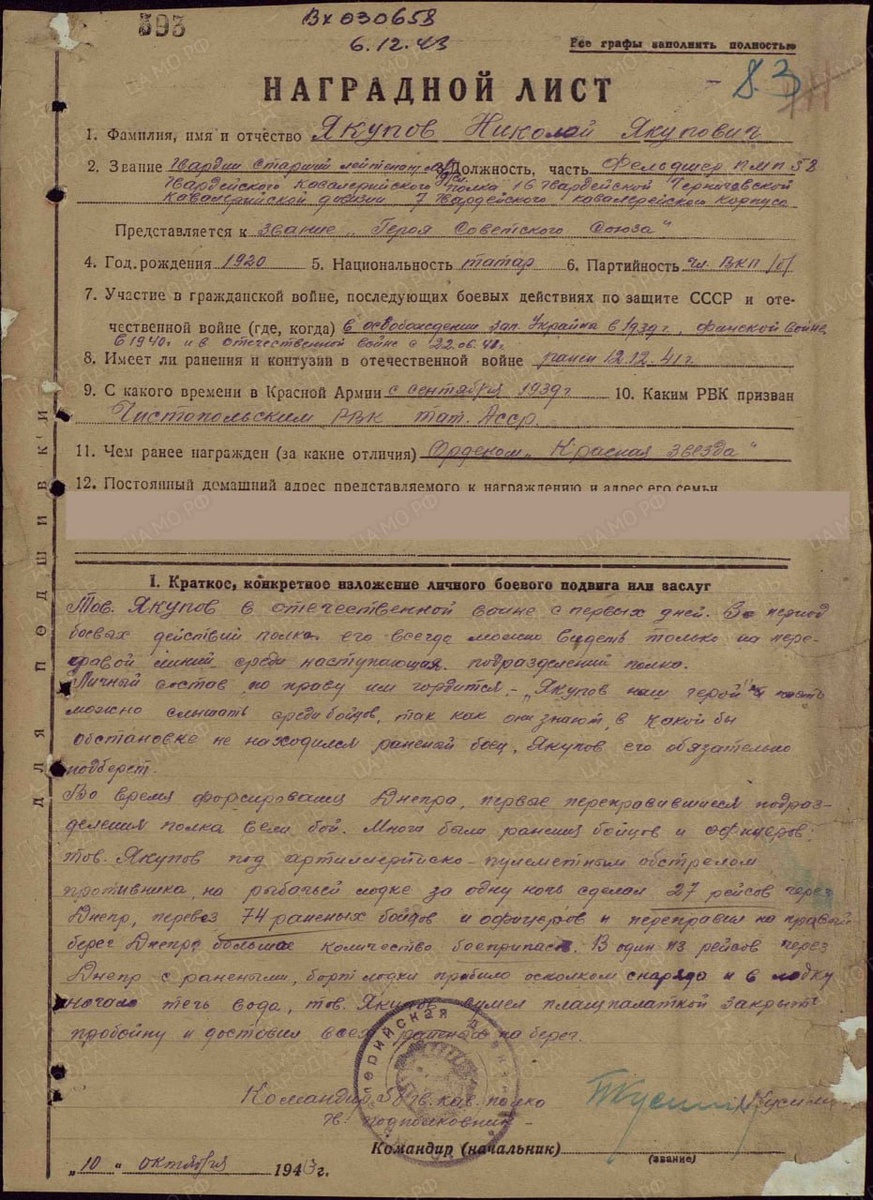 393
Вх 030658
6.12.43
Все графы заполнить полностью
83
НАГРАДНОЙ ЛИСТ
1. Фамилия, имя и отчество Якупов Николай Якупович
2. Звание Гвардии старший лейтенант м/с Должность, часть Фельдшер ПМП 58
Гвардейского Кавалерийского полка 16 Гвардейской Черниговской
Кавалерийской дивизии 7 Гвардейского кавалерейского корпуса
Представляется к званию „Героя Советского Союза"
4. Год рождения 1920 5. Национальность татар 6. Партийность чл. ВКП/б/
7. Участие в гражданской войне, последующих боевых действиях по защите СССР и оте-
чественной войне (где, когда) в освобождении зап. Украйна в 1939г, финской войне
в 1940г и в отечественной войне с 22.06.41г.
8. Имеет ли ранения и контузии в отечественной войне ранен 12.12.41г.
9. С какого времени в Красной Армии с сентября 1939г 10. Каким РВК призван
Чистопольским РВК тат. Асср.
11. Чем ранее награжден (за какие отличия) Орденом „Красная звезда"
12. Постоянный домашний адрес представляемого к награждению и адрес его семьи
I. Краткое, конкретное изложение личного боевого подвига или заслуг
Тов. Якупов в отечественной войне с первых дней. За период
боевых действий полка его всегда можно видеть только на пере-
довой линий, среди наступающих подразделений полка.
Личный состав по праву им гордится. - „Якупов наш герой"
можно слышать среди бойцов, так как они знают, в какой бы
обстановке не находился раненый боец, Якупов его обязательно
подберет.
Во время форсирования Днепра, первые переправившиеся подраз-
деления полка вели бой. Много были ранения бойцов и офицеров.
тов. Якупов под артиллерийско-пулеметным обстрелом
противника, на рыбачьей лодке за одну ночь сделал 27 рейсов через
Днепр, перевез 74 раненых бойцов и офицеров и переправил на правый
берег Днепра большое количество боеприпас. В один из рейсов через
Днепр с ранеными, борт лодки пробило осколком снаряда и в лодку
начало течь вода, тов. Якупов сумел плащпалаткой закрыть
пробойну и доставил всех раненых на берег.
Командир 58 гв. кав. полка
гв. подполковник -
Командир (начальник)
(звание)
„10" октября 1943г.
ДЛЯ ПОДШИВКИ